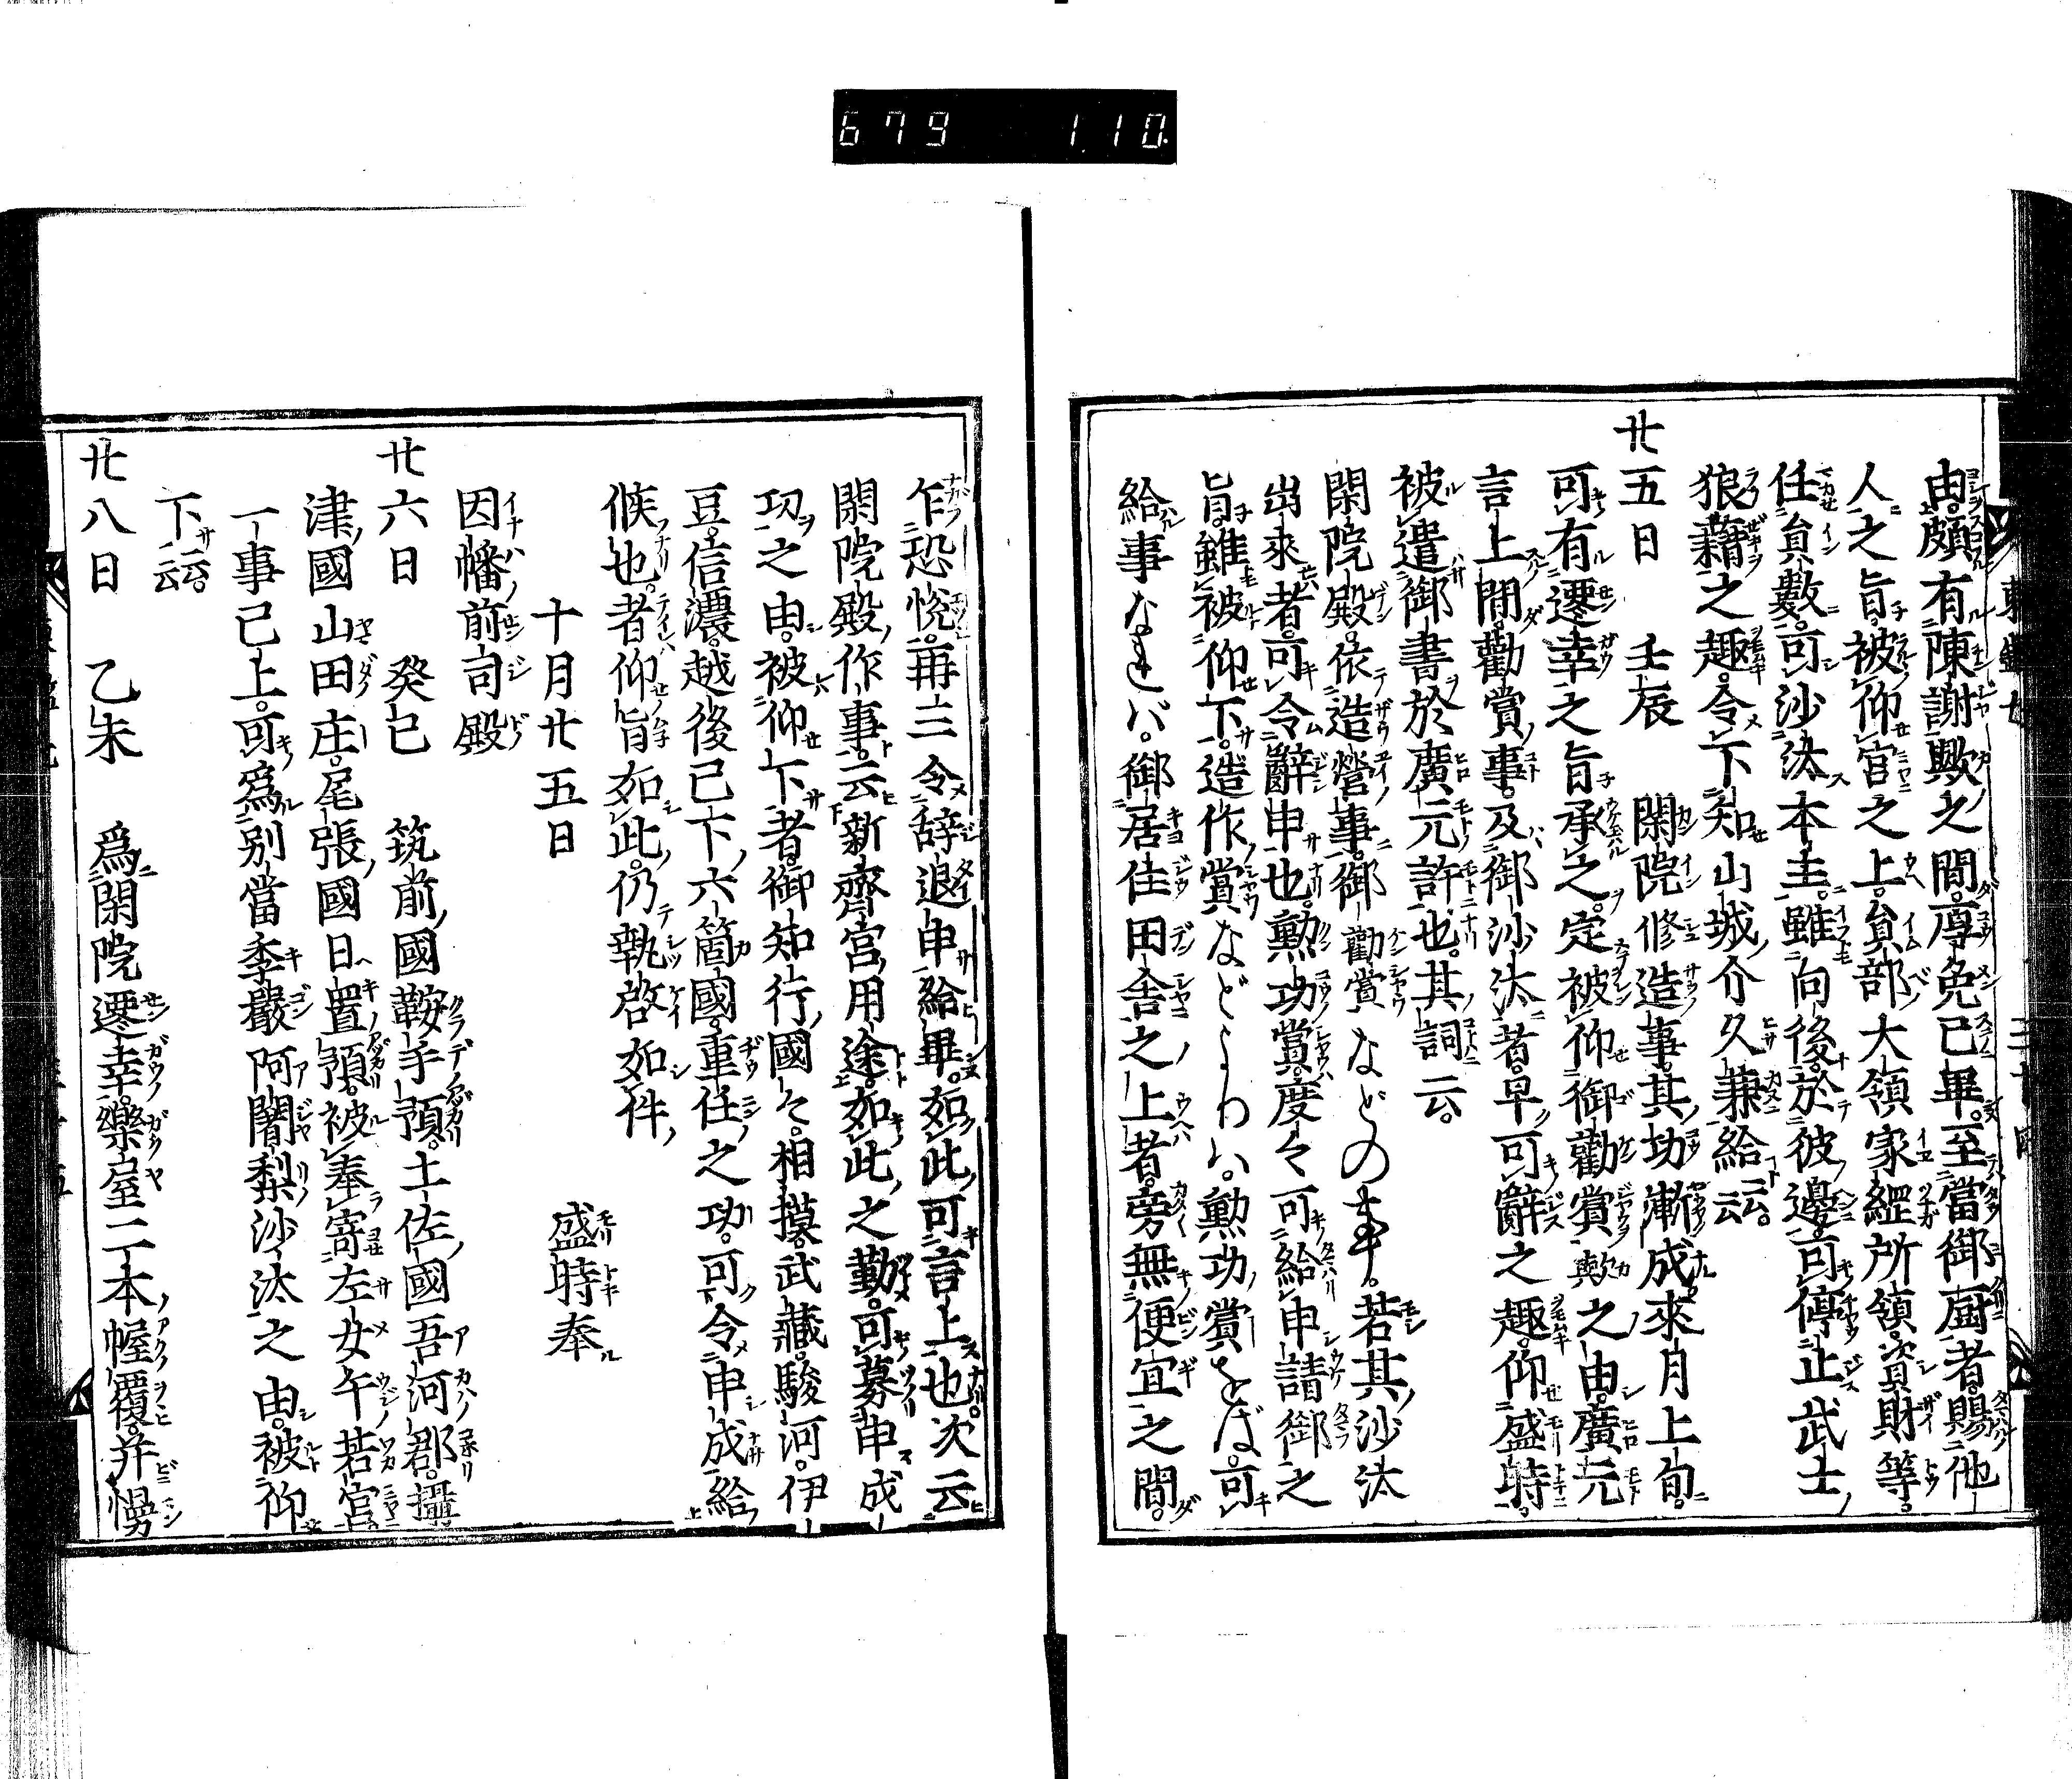 679 1.10.
由。頗有陳謝歟之間。厚免已畢。至當御厨者。賜他
人之旨。被仰宮之上。員部大領家綱所領。資財等。
任員數。可沙汰本主。雖向後。於彼邊。可停止武士
狼藉之趣。令下知山城介久兼給云云。
廿五日 壬辰 閑院修造事。其功漸成。來月上旬。
可有遷幸之旨承之。定被仰御勸賞歟之由。廣元
言上間。勸賞事。及御沙汰者。早可辭之趣。仰盛時。
被遣御書於廣元許也。其詞云。
閑院殿。依造營事。御勸賞などの事。若其沙汰
出來者。可令辭申也。勲功賞。度々可給申請御之
旨。雖被仰下。造作賞などよりハ。勲功賞をば。可
給事なれバ。御居住田舎之上者。旁無便宜之間。
乍恐悦。再三令辞退申給畢。如此可言上也次云
閑院殿作事。云新齊宮用途。如此之勤。可募申成
功之由。被仰下者。御知行國々。相摸。武藏。駿河。伊
豆。信濃。越後已下六箇國。重任之功。可令申成給
候也。者仰旨如此。仍執啓如件
十月廿五日 盛時奉
因幡前司殿
廿六日 癸巳 筑前國鞍手預。土佐國吾河郡。攝
津國山田庄。尾張國日置預。被奉寄左女牛若宮
一事已上。可爲別當季嚴阿闍梨沙汰之由。被仰
下云云。
廿八日 乙未 爲閑院遷幸。樂屋二本幄覆。并幔